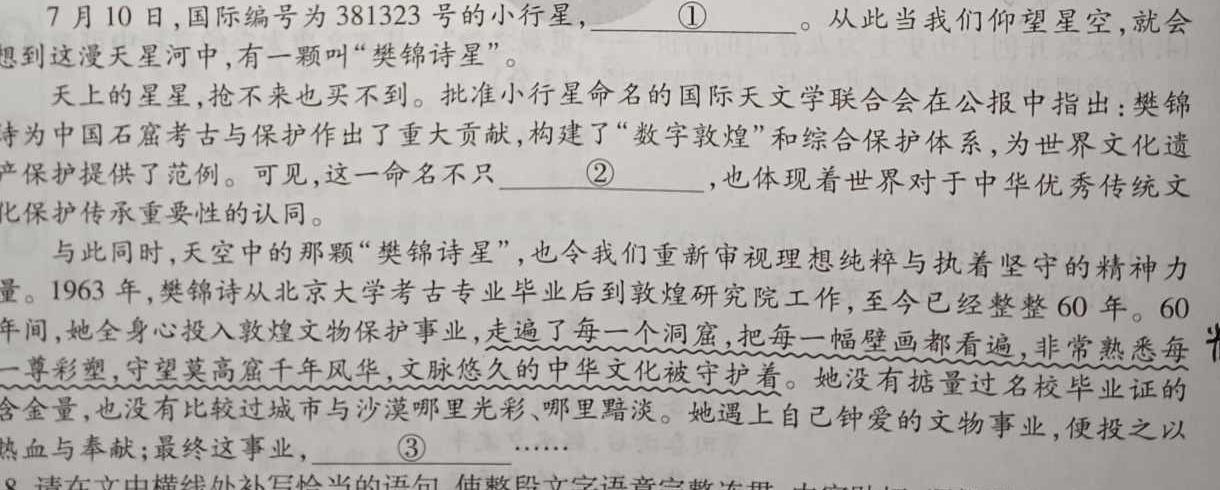 7月10日,国际编号为381323号的小行星,①。从此当我们仰望星空,就会
想到这漫天星河中,有一颗叫“樊锦诗星”。
天上的星星,抢不来也买不到。批准小行星命名的国际天文学联合会在公报中指出:樊锦
诗为中国石窟考古与保护作出了重大贡献,构建了“数字敦煌”和综合保护体系,为世界文化遗
产保护提供了范例。可见,这一命名不只②,也体现着世界对于中华优秀传统文
化保护传承重要性的认同。
与此同时,天空中的那颗“樊锦诗星”,也令我们重新审视理想纯粹与执着坚守的精神力
量。1963年,樊锦诗从北京大学考古专业毕业后到敦煌研究院工作,至今已经整整60年。60
年间,她全身心投入敦煌文物保护事业,走遍了每一个洞窟,把每一幅壁画都看遍,非常熟悉每
一尊彩塑,守望莫高窟千年风华,文脉悠久的中华文化被守护着。她没有掂量过名校毕业证的
含金量,也没有比较过城市与沙漠哪里光彩、哪里黯淡。她遇上自己钟爱的文物事业,便投之以
热血与奉献;最终这事业,③……
8.请在文中横线处补写恰当的语句,使整段文字语意完整连贯